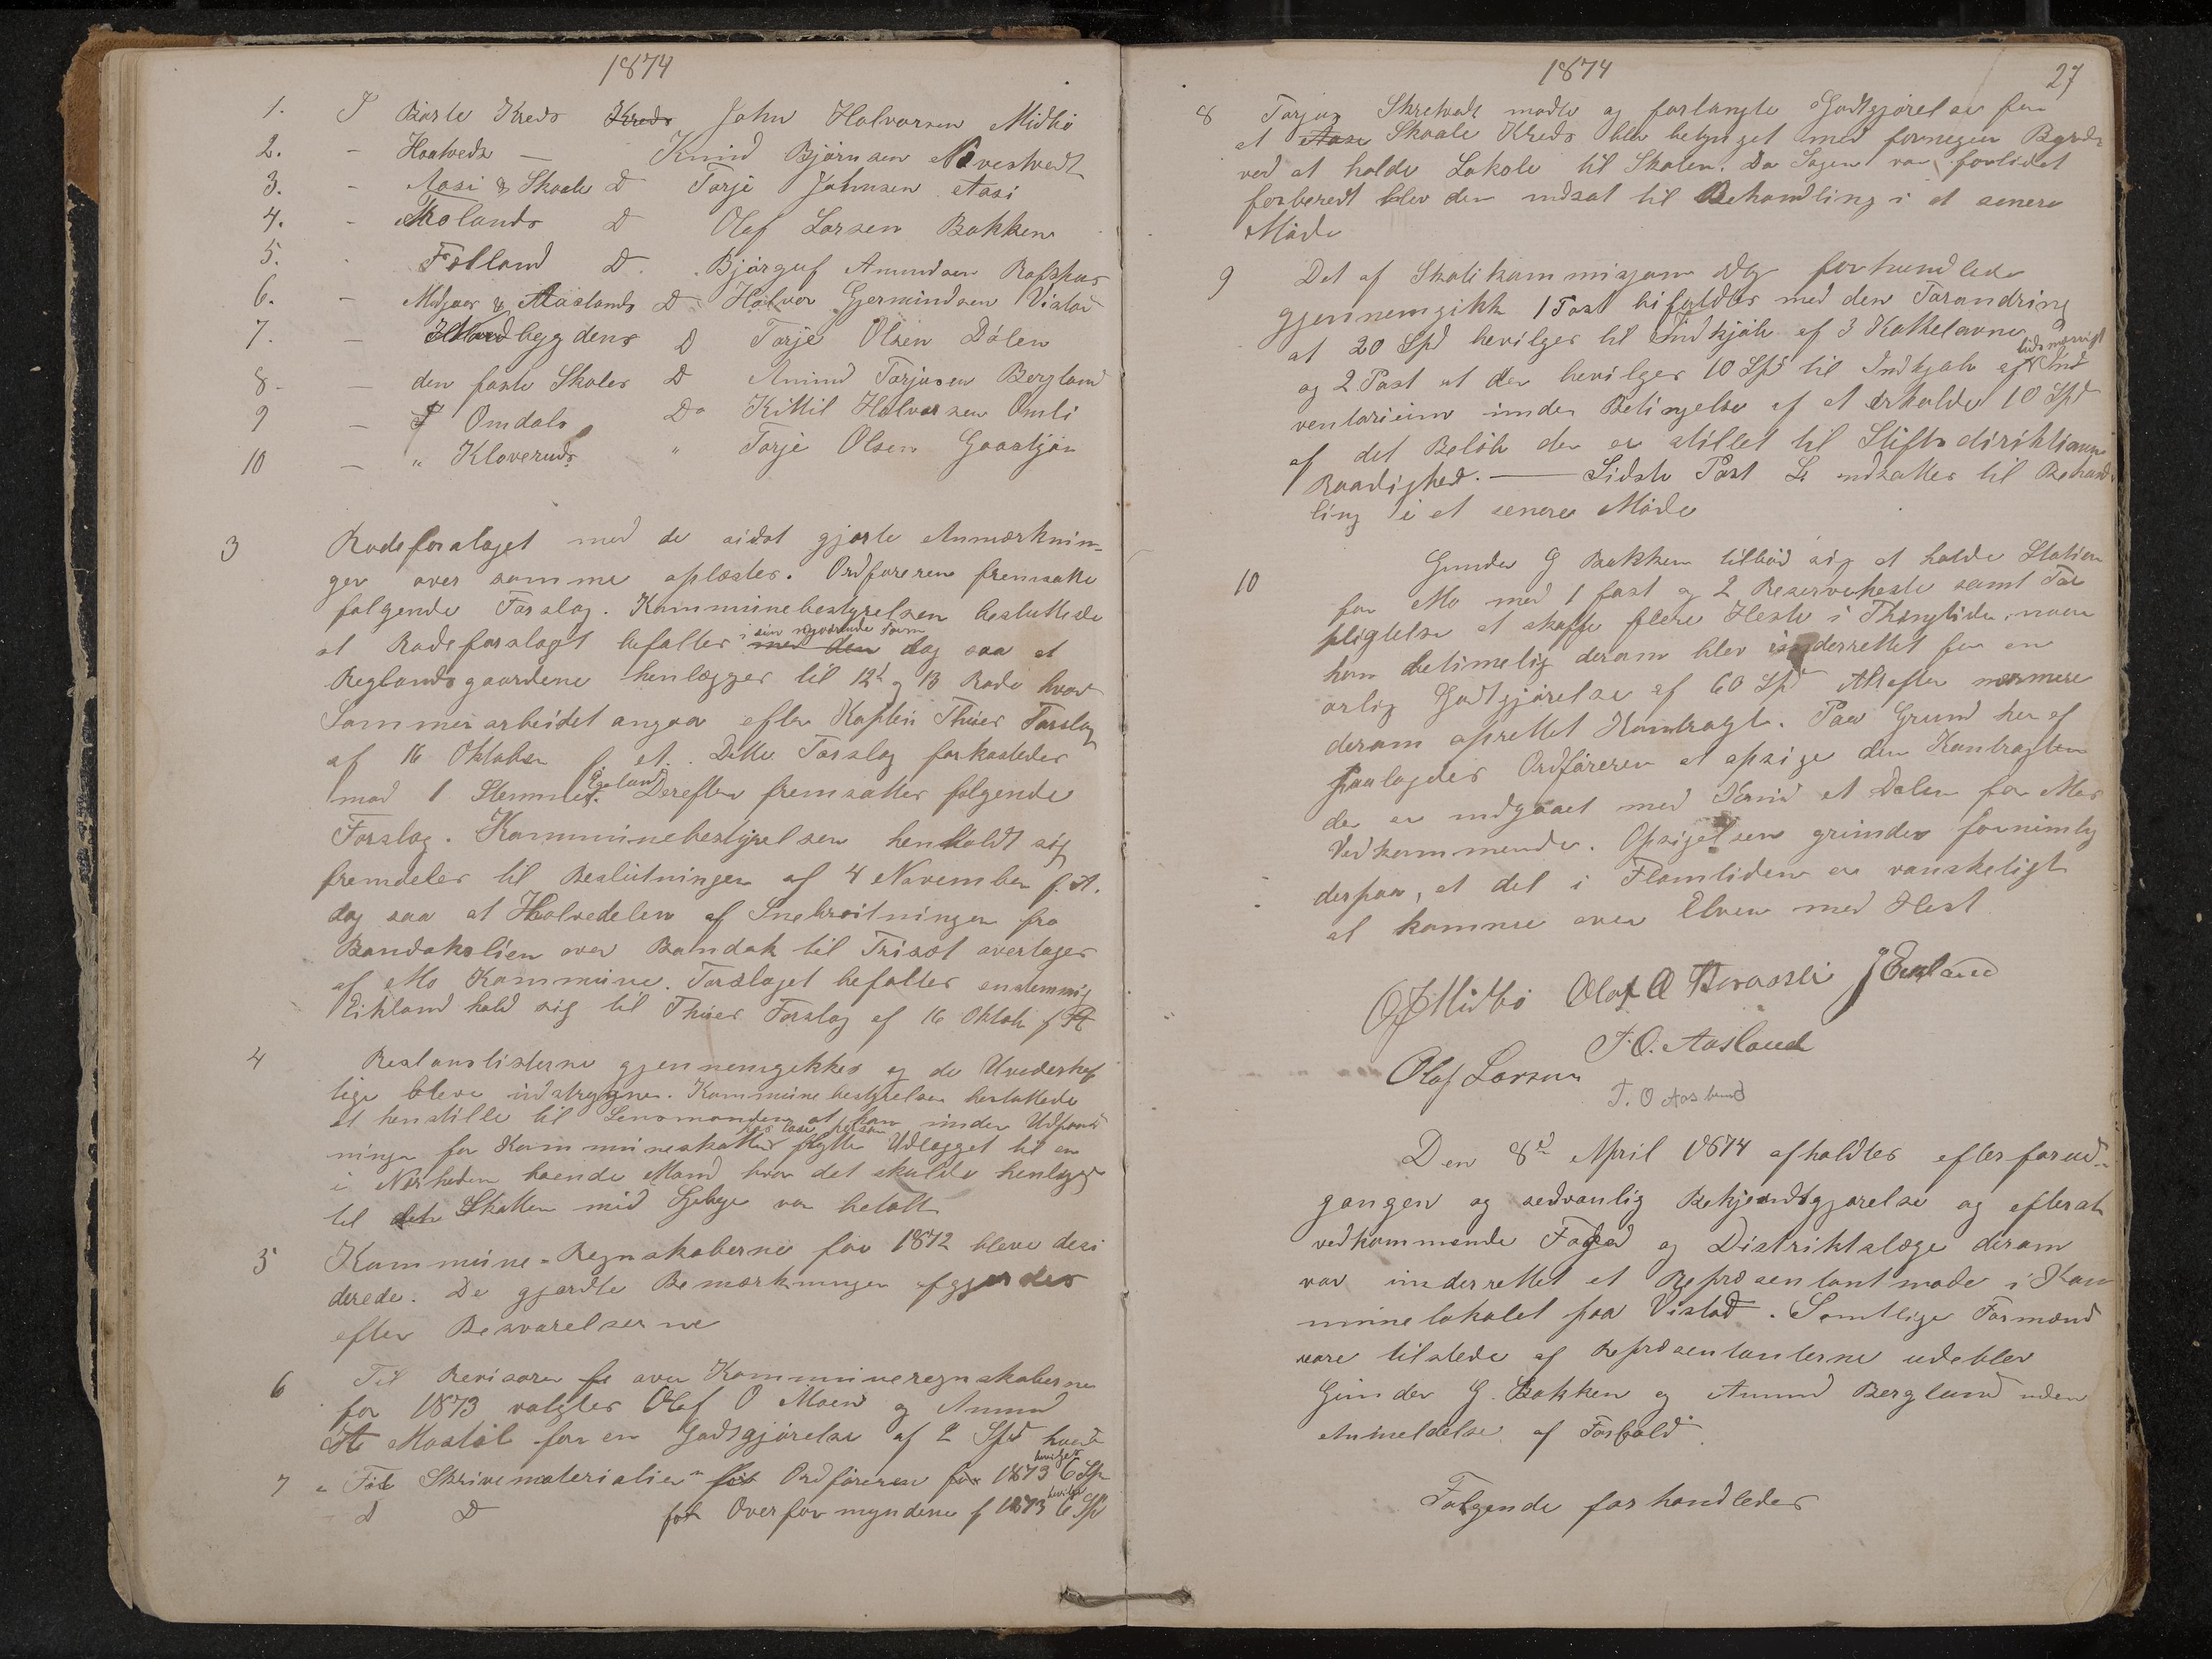 1874
1. I Börte Kreds Kreds John Halvorsen Midbö
2. - Haatveds — Knud Björnsen Nævestvedt
3. - Aasi & Skaale D Torje Johnsen Aasi
4. - Molands D Olaf Larsen Bakken
5. - Felland D. Björguf Amundsen Rafshus
6. - & Aaslands D Halvor Gjermundsen Vistad
7. - bygdens D Torje Olsen Dölen
8 - - den faste Skoles D Amund Torjusen Bergland
9 - I Omdals Do Kittil Halvorsen Omli
10 - " Kloveruds " Torje Olsen Gaastjön
3 Rodeforslaget med de sidst gjorte Anmærknin-
ger over samme oplæstes. Ordføreren fremsatte
følgende Forslag. Kommunebestyrelsen besluttede
at Rodeforslaget befaltes i sin nyværende Form med den dog saa at
Reglandsgaardene henlægges til 12t og 13 Rode hvad
Sommerarbeidet angaar efter Kaptein Thues Forslag
af 16 Oktober f. A. Dette Forslag forkastedes
mod 1 Stemme. Egeland Derefter fremsattes følgende
Forslag. Kommunebestyrelsen henholdt sig
fremdeles til Beslutningen af 4 November f. A.
dog saa at Halvedelen af Snebröitningen fra
Bandakslien over Bandak til Triset overtages
af Mo Kommune. Forslaget befaltes enstemmig
Eikland hold sig til Thues Forslag af 16 Oktob f A
4 Restanslisterne gjennemgikkes og de Uvederhef
lige bleve udstrøgne. Kommunebestyrelsen besluttede
at henstille til Lensmanden at han under Udpant
ninger for Kommuneskatter flytter Udlægget til en
i Nærheden boende Mand hvor det skulde henligge
til den Skatten med Gebyr var betalt
5 Kommune-Regnskaberne for 1872 bleve desi
derede. De gjordte Bemærkninger afgjordes
efter Besvarelserne
6 Til Revisorer fo over Kommuneregnskaberne
for 1873 valgtes Olaf O Moen og Amund
A Mostöl for en Godtgjörelse af 2 Spd hver
7 " For Skrivematerialier for Ordföreren for 1873 bevilges 6 Sp
- D D for Overformynderne f 1873 bevilges 6 Sp
1874 27
8 Torjus Skretvedt mødte og forlangte Godtgjörelse for
at Aase Skaale Kreds blev betynget med formegen Byrde
ved at holde Lokale til Skolen. Da Sagen var forlidet
forberedt blev den udsat til Behandling i et senere
Möde
9 Det af Skolekommisjonen forhandlede
gjennemgikk 1 Post bifaldtes med den Forandring
at 20 Spd bevilges til Indkjöb af 3 Kakkelovne
og 2 Post at der bevilges 10 Spd til Indkjøb af Ind
ventarium under Betingelse af at erholde 10 Spd
af det Beløb der er stillet til Stiftsdirektionens
Raadighed. — Sidste Post udsattes til Behand-
ling i et senere Møde
10 Gunder G Bakken tilbød sig at holde Station
for Mo med 1 fast og 2 Reserveheste samt For
pligtelse at skaffe flere Heste i Thingtiden, naar
han betimelig derom blev underrettet for en
aarlig Godtgjörelse af 60 Spd Alt efter nærmere
derom oprettet Kontragt. Paa Grund her af
paalagdes Ordføreren at opsige den Kontragten
der er indgaaet med Knud at Dalen for Mos
Vedkommende. Opsigelsen grundes fornemlig
derpaa, at det i Flomtiden er vanskeligt
at komme over Elven med Hest
O J Midbö Olaf O Bervasli J Eikland
Olaf Larsen T. O. Aasland
T. O Aasland
Den 8de April 1874 afholdtes efter forud-
gangen og sedvanlig Bekjendtgjørelse og efterat
vedkommende Foged og Distriktslæge derom
var underrettet et Repræsentantmøde i Kom
munelokalet paa Vistad. Samtlige Formænd
vare tilstede af Repræsentanterne udeblev
Gunder G. Bakken og Amund Bergland uden
Anmeldelse af Forfald.
Følgende forhandledes